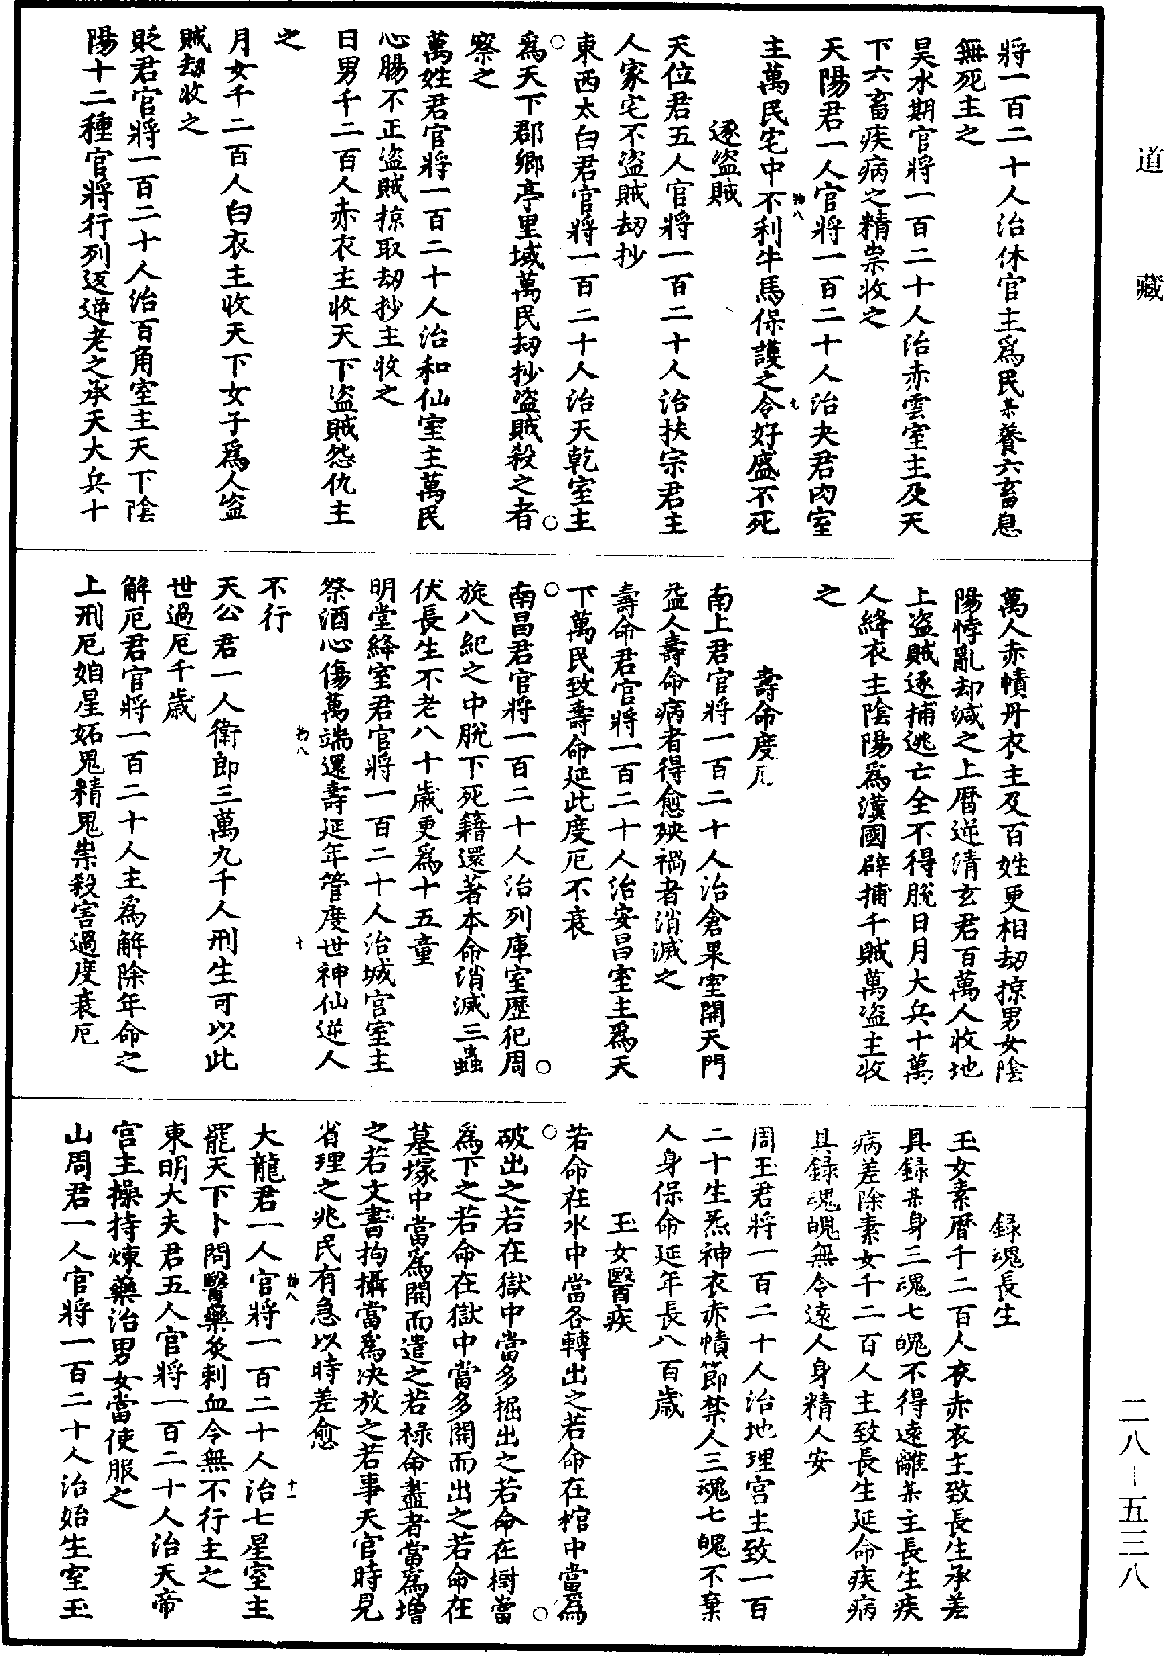 道藏
將一百二十人治休官主爲民某養六畜息
無死主之
昊水期官將一百二十人治赤雲室主及天
下六畜疾病之精祟收之
天陽君一人官將一百二十人治夬君内室
主萬民宅中不利牛馬保護之令好盛不死
逐盜賊
天位君五人官將一百二十人治扶宗君主
人家宅不盜賊刼抄
東西太白君官將一百二十人治天乾室主
○爲天下郡鄉亭里域萬民刼抄盜賊殺之者○
察之
萬姓君官將一百二十人治和仙室主萬民
心腸不正盜賊掠取刼抄主收之
日男千二百人赤衣主收天下盜賊怨仇主
之
月女千二百人白衣主收天下女子爲人盜
賊刼收之
貶君官將一百二十人治百角室主天下陰
陽十二種官將行列返逆老之承天大兵十
萬人赤幘丹衣主及百姓更相刼掠男女陰
陽悖亂却滅之上曆逆清玄君百萬人收地
上盜賊逐捕逃亡全不得脫日月大兵十萬
人絳衣主陰陽爲漢國辟捕千賊萬盜主收
之
壽命度厄
南上君官將一百二十人治倉果室開天門
益人壽命病者得愈殃禍者消滅之
壽命君官將一百二十人治安昌室主爲天
下萬民致壽命延此度厄不衰
○南昌君官將一百二十人治列庫室歷犯周○
旋八紀之中脫下死籍還著本命消滅三蟲
伏長生不老八十歲更爲十五童
明堂絳室君官將一百二十人治城宫室主
祭酒心傷萬端還壽延年管度世神仙逆人
不行
天公君一人衛郎三萬九千人刑生可以此
世過厄千歲
解厄君官將一百二十人主爲解除年命之
上刑厄妲星妬鬼精鬼祟殺害過度衰厄
録魂長生
玉女素曆千二百人衣赤衣主致長生承差
具録某身三魂七魄不得遠離某主長生疾
病差除素女千二百人主致長生延命疾病
具録魂魄無令遠人身精人安
周王君將一百二十人治地理宫主致一百
二十生炁神衣赤幘節禁人三魂七魄不棄
人身保命延年長八百歲
玉女醫疾
若命在水中當各轉出之若命在棺中當爲
○破出之若在獄中當多掘出之若命在樹當○
爲下之若命在獄中當多開而出之若命在
墓塚中當爲開而遣之若祿命盡者當爲增
之若文書拘攝當爲决放之若事天官時見
省理之兆民有急以時差愈
大龍君一人官將一百二十人治七星室主
罷天下卜問醫藥灸刺血令無不行主之
東明大夫君五人官將一百二十人治天帝
宫主操持煉藥治男女當使服之
山周君一人官將一百二十人治始生室玉
二八—五三八